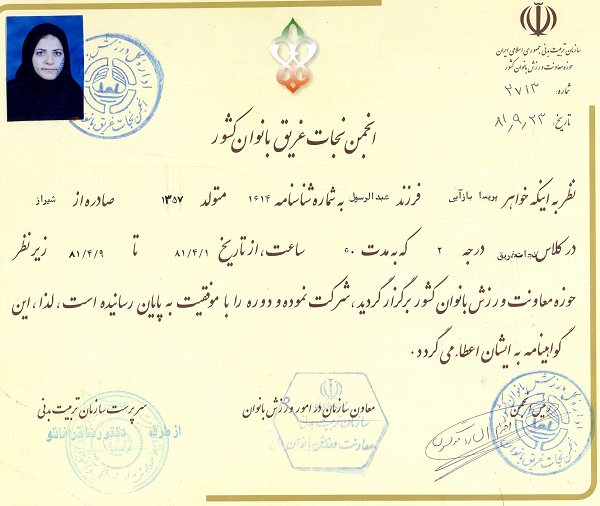 سازمان تربیت بدنی جمهوری اسلامی ایران
حوزه معاونت ورزش بانوان کشور
شماره: ۲۷۱۳
تاریخ: ۸۱,۹,۲۳
اداره کل ورزش بانوان
انجمن نجات غریق بانوان
انجمن نجات غریق بانوان کشور
نظر به اینکه خواهر پریسا بازآیی فرزند عبدالرسول به شماره شناسنامه ۱۶۱۴ متولد ۱۳۵۷ صادره از شیراز
در کلاس نجات غریق درجه ۲ که به مدت ۶۰ ساعت، از تاریخ ۸۱/۴/۱ تا ۸۱/۴/۹ زیر نظر
حوزه معاونت ورزش بانوان کشور برگزار گردید، شرکت نموده و دوره را با موفقیت به پایان رسانیده است، لذا، این
گواهینامه به ایشان اعطاء می گردد.
رئیس انجمن
معاون سازمان در امور ورزش بانوان
سرپرست سازمان تربیت بدنی
از طرف دکتر رضا قراخانلو
سازمان تربیت بدنی
معاونت ورزش بانوان
انجمن نجات غریق بانوان